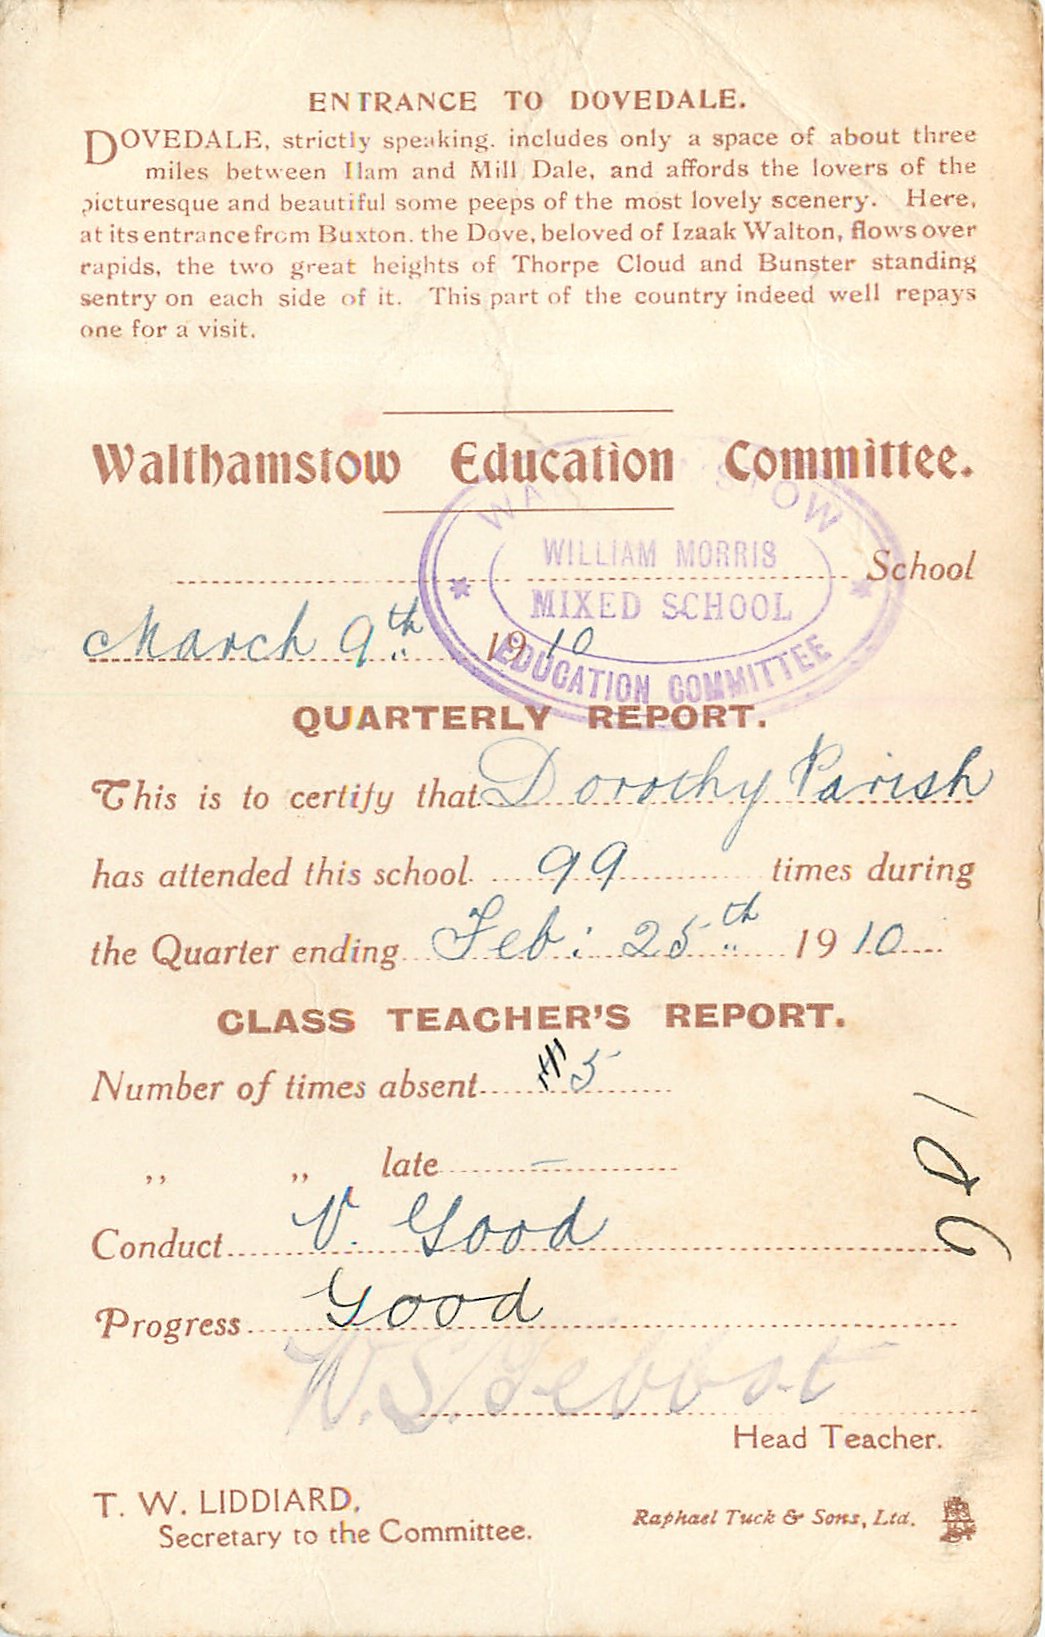 ENTRANCE TO DOVEDALE.
DOVEDALE, strictly speaking, includes only a space of about three
miles between Ilam and Mill Dale, and affords the lovers of the
picturesque and beautiful some peeps of the most lovely scenery. Here,
at its entrance from Buxton, the Dove, beloved of Izaak Walton, flows over
rapids, the two great heights of Thorpe Cloud and Bunster standing
sentry on each side of it. This part of the country indeed well repays
one for a visit.
Walthamstow Education Committee.
WALTHAMSTOW
WILLIAM MORRIS
MIXED SCHOOL
EDUCATION COMMITTEE
School
March 9th 1910
QUARTERLY REPORT.
This is to certify that Dorothy Parish
has attended this school 99 times during
the Quarter ending Feb: 25th 1910
CLASS TEACHER'S REPORT.
Number of times absent 5
,, ,, late –
Conduct V. Good
Progress Good
W. S.
Head Teacher.
T. W. LIDDIARD,
Secretary to the Committee.
Raphael Tuck & Sons, Ltd.